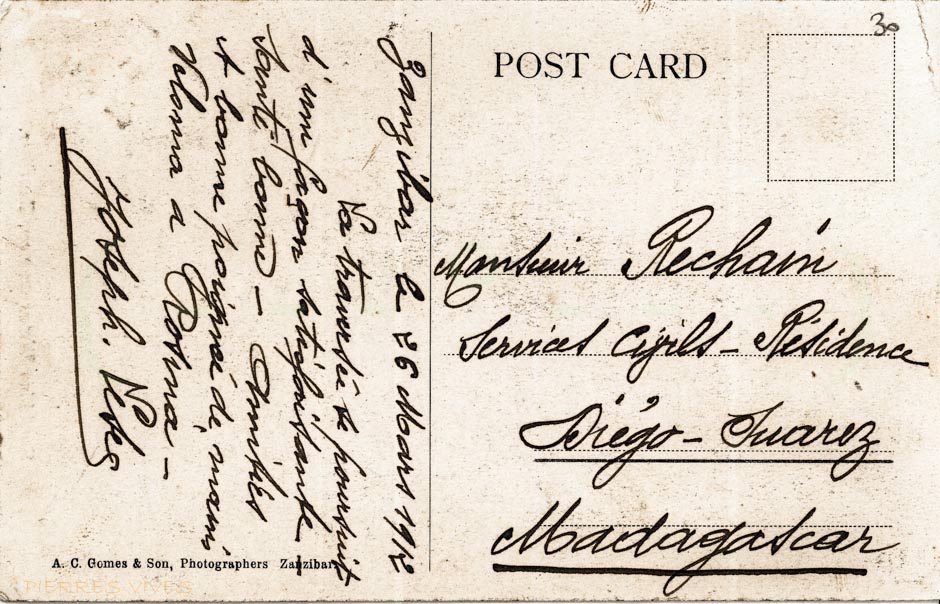 POST CARD
30
Zanzibar le 26 Mars 1912
La traversée se poursuit
d'une façon satisfaisante –
Santé bonne – Amitiés
& bonne poignée de mains
Veloma à Rosina –
Joseph.
Monsieur Rechain
Services Civils – Résidence
Diégo – Suarez
Madagascar
A. C. Gomes & Son, Photographers Zanzibar
PIERRES VIVES